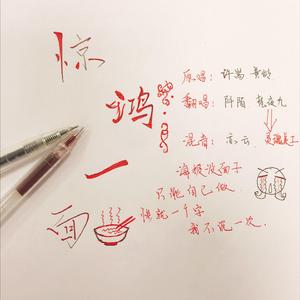 惊鸿一面
原唱：许嵩 黄龄
翻唱：阡陌 夜九
混音：亦云 灵魂美工
海报没面子
只能自己做
就一个字
我不说一次.